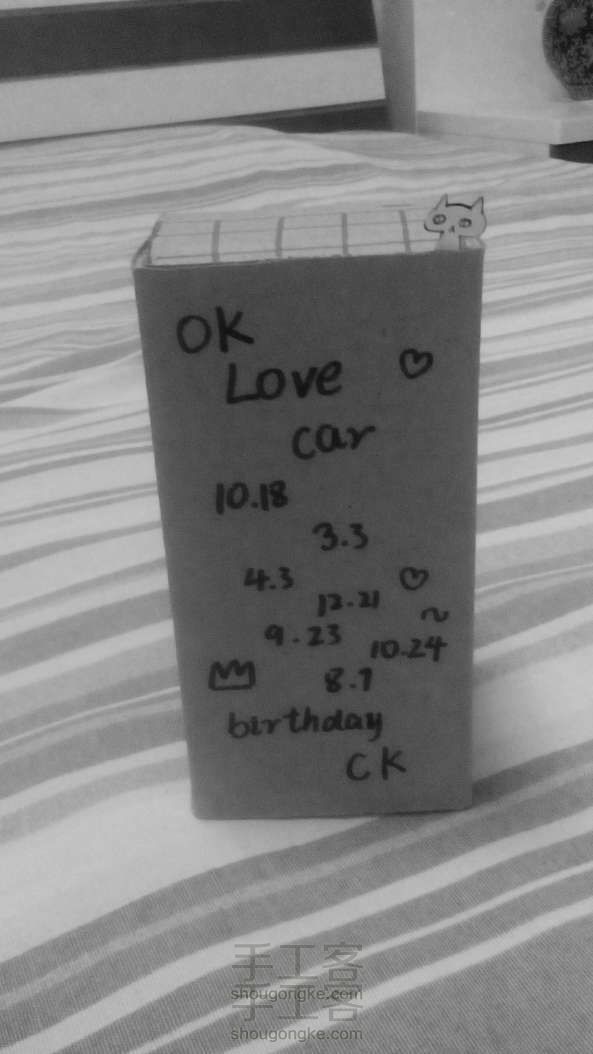 OK
Love
car
10.18
3.3
4.3
12.21
9.23
10.24
8.7
birthday
CK
手工客
shougongke.com
手工客
shougongke.com